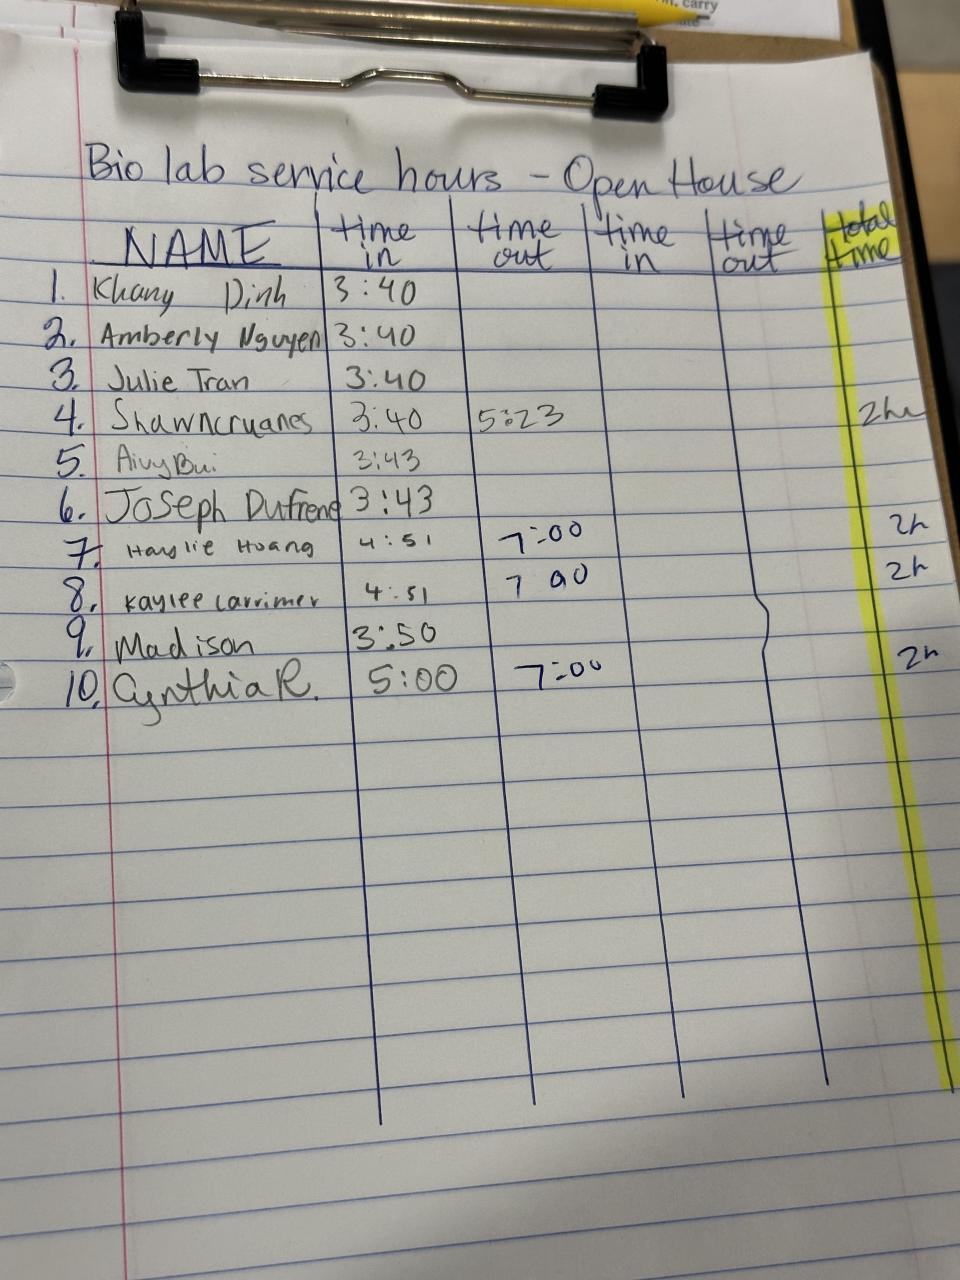 carry
Bio lab service hours - Open House
NAME time in time out time in time out total time
1. Khang Dinh 3:40
2. Amberly Nguyen 3:40
3. Julie Tran 3:40
4. Shawncruanes 3:40 5:23 2hr
5. Aivy Bui 3:43
6. Joseph Dufrene 3:43
7. Haylie Hoang 4:51 7:00 2h
8. Kaylee Larrimer 4:51 7 00 2h
9. Madison 3:50
10. Cynthia R. 5:00 7:00 2h